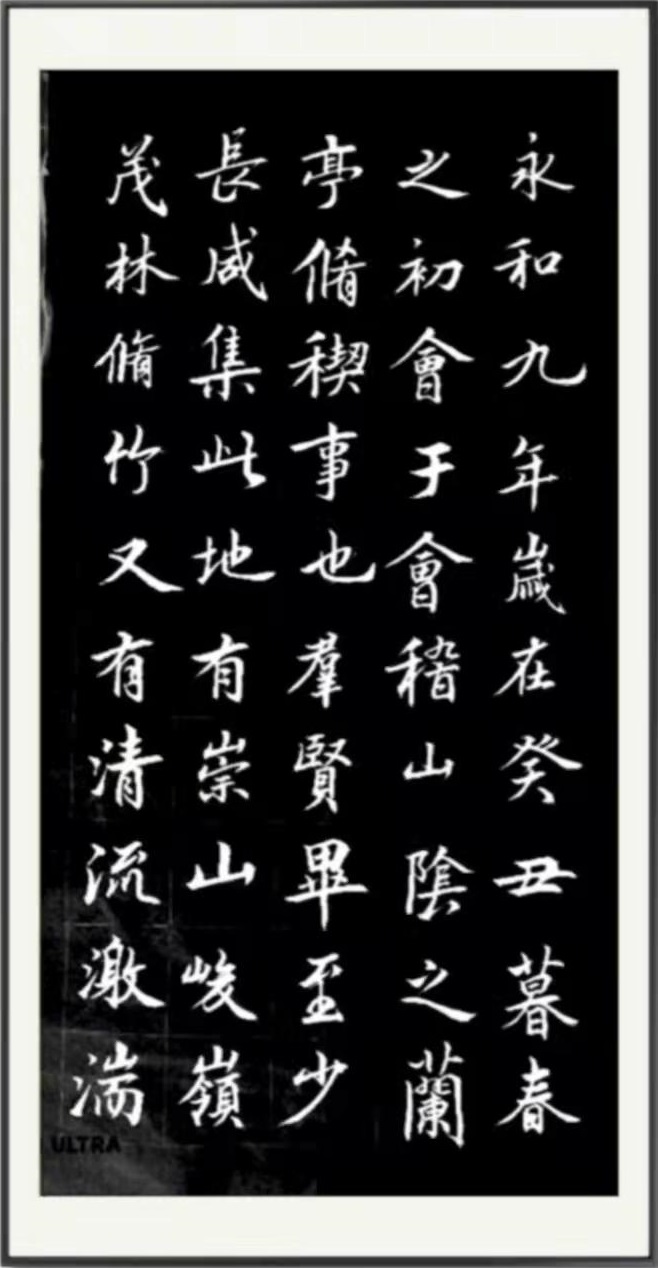 永和九年歲在癸丑暮春
之初會于會稽山陰之蘭
亭脩稧事也羣賢畢至少
長咸集此地有崇山峻嶺
茂林脩竹又有清流激湍
ULTRA